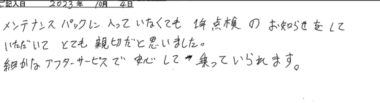 ご記入日 2023年 10月 4日
メンテナンスパックに入っていなくても 1年点検のお知らせをして
いただいて とても親切だと思いました。
細かなアフターサービスで安心して乗っていられます。